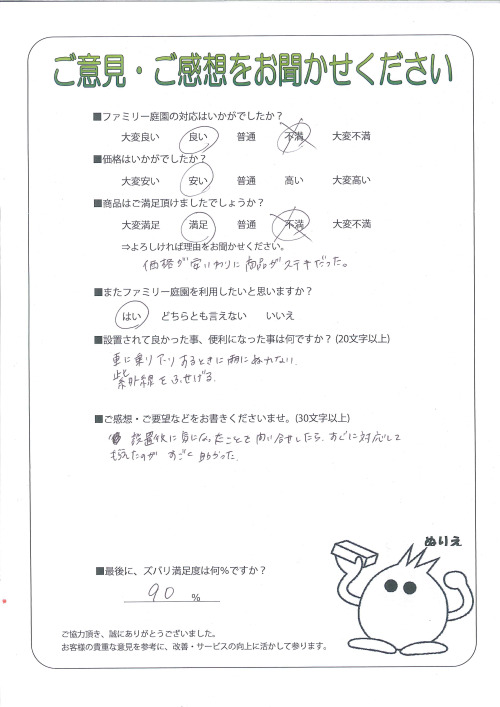 ご意見・ご感想をお聞かせください
■ファミリー庭園の対応はいかがでしたか？
大変良い 良い 普通 不満 大変不満
■価格はいかがでしたか？
大変安い 安い 普通 高い 大変高い
■商品はご満足頂けましたでしょうか？
大変満足 満足 普通 不満 大変不満
⇒よろしければ理由をお聞かせください。
価格が安いわりに商品がステキだった。
■またファミリー庭園を利用したいと思いますか？
はい どちらとも言えない いいえ
■設置されて良かった事、便利になった事は何ですか？(20文字以上)
車に乗り下りするときに雨にぬれない。
紫外線をふせげる。
■ご感想・ご要望などをお書きくださいませ。(30文字以上)
設置後に気になったことを問い合せしたら、すぐに対応して
もらえたのが すごく助かった。
ぬりえ
■最後に、ズバリ満足度は何%ですか？
90 %
ご協力頂き、誠にありがとうございました。
お客様の貴重な意見を参考に、改善・サービスの向上に活かして参ります。